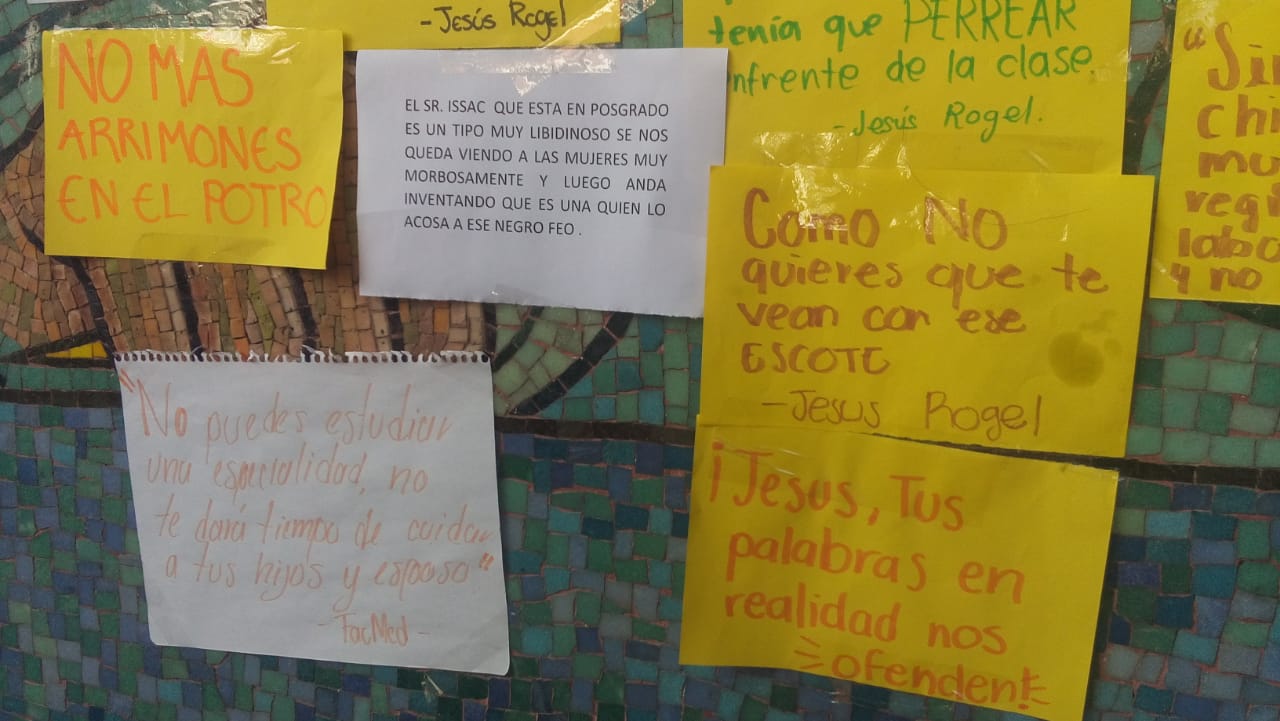 -Jesús Rogel
NO MAS
ARRIMONES
EN EL POTRO
EL SR. ISSAC QUE ESTA EN POSGRADO
ES UN TIPO MUY LIBIDINOSO SE NOS
QUEDA VIENDO A LAS MUJERES MUY
MORBOSAMENTE Y LUEGO ANDA
INVENTANDO QUE ES UNA QUIEN LO
ACOSA A ESE NEGRO FEO .
tenía que PERREAR
enfrente de la clase.
-Jesús Rogel.
Como NO
quieres que te
vean con ese
ESCOTE
-Jesus Rogel
¡Jesus, Tus
palabras en
realidad nos
ofenden!
"No puedes estudiar
una especialidad, no
te dará tiempo de cuidar
a tus hijos y esposo"
-FacMed-
y no